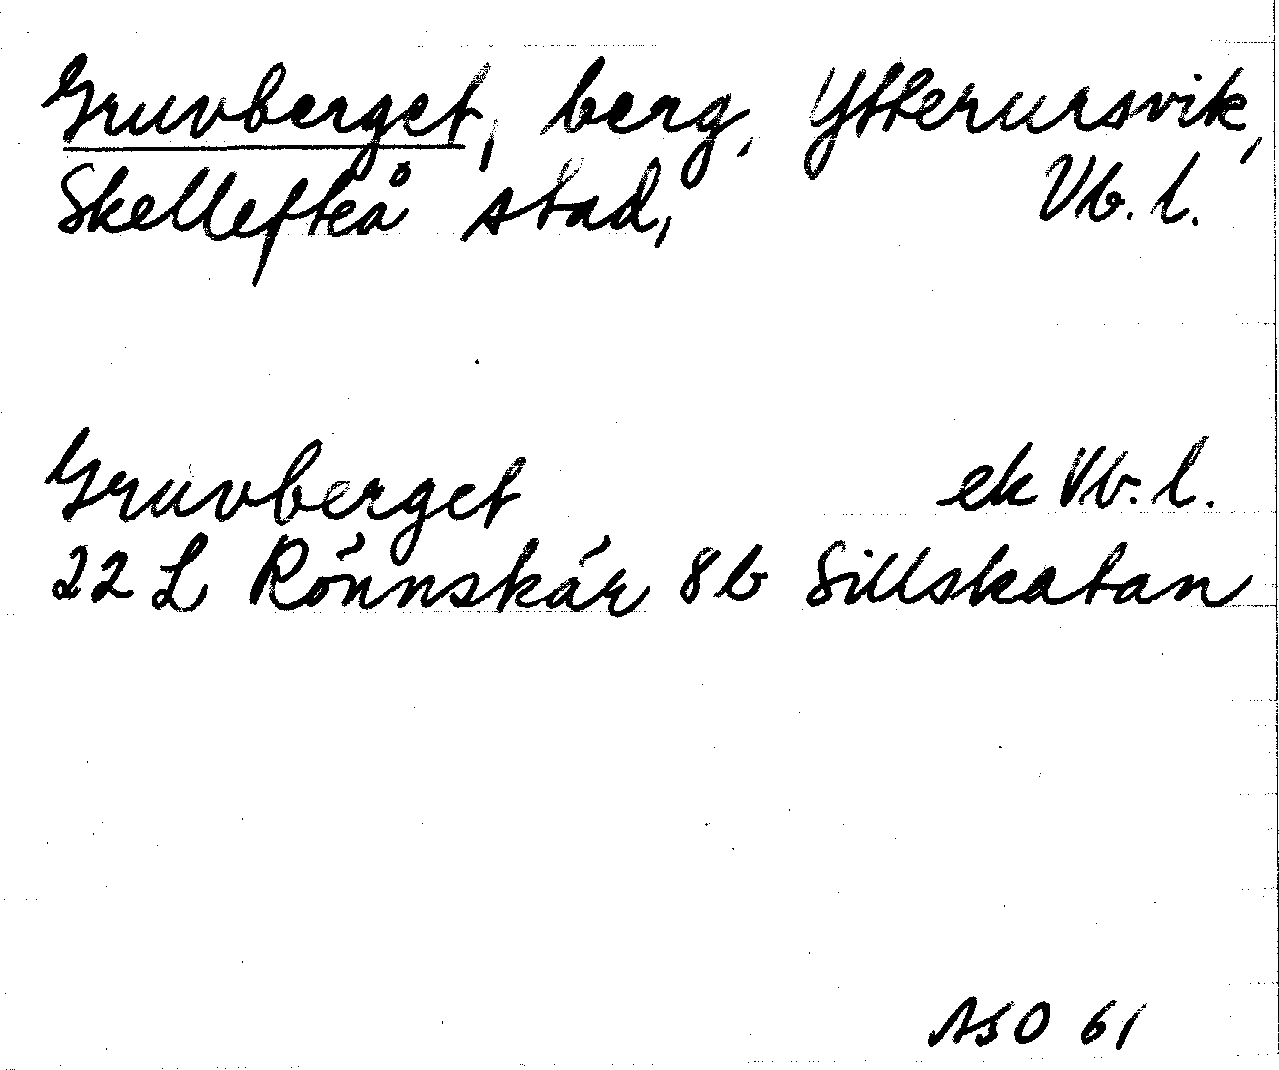 Gruvberget, berg, Ytterursvik,
Skellefteå stad, Vb. l.
Gruvberget ek Vb. l.
22 L Rönnskär 8b Sillskatan
ASO 61